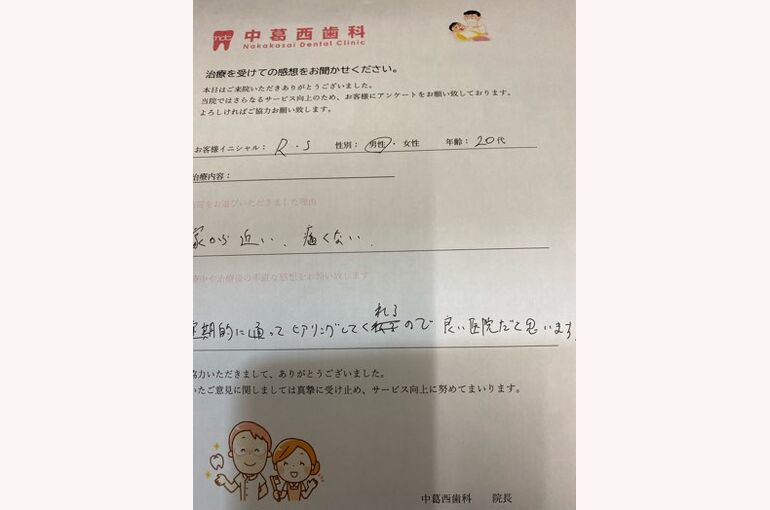 中葛西歯科
Nakakasai Dental Clinic
治療を受けての感想をお聞かせください。
本日はご来院いただきありがとうございました。
当院ではさらなるサービス向上のため、お客様にアンケートをお願い致しております。
よろしければご協力お願い致します。
お客様イニシャル： R・S 性別：男性・女性 年齢：20代
治療内容：
をお選びいただきました理由
家から近い、痛くない、
療中や治療後の率直な感想をお願い致します
定期的に通ってヒアリングしてくれるので良い医院だと思います
協力いただきまして、ありがとうございました。
いたご意見に関しましては真摯に受け止め、サービス向上に努めてまいります。
中葛西歯科 院長